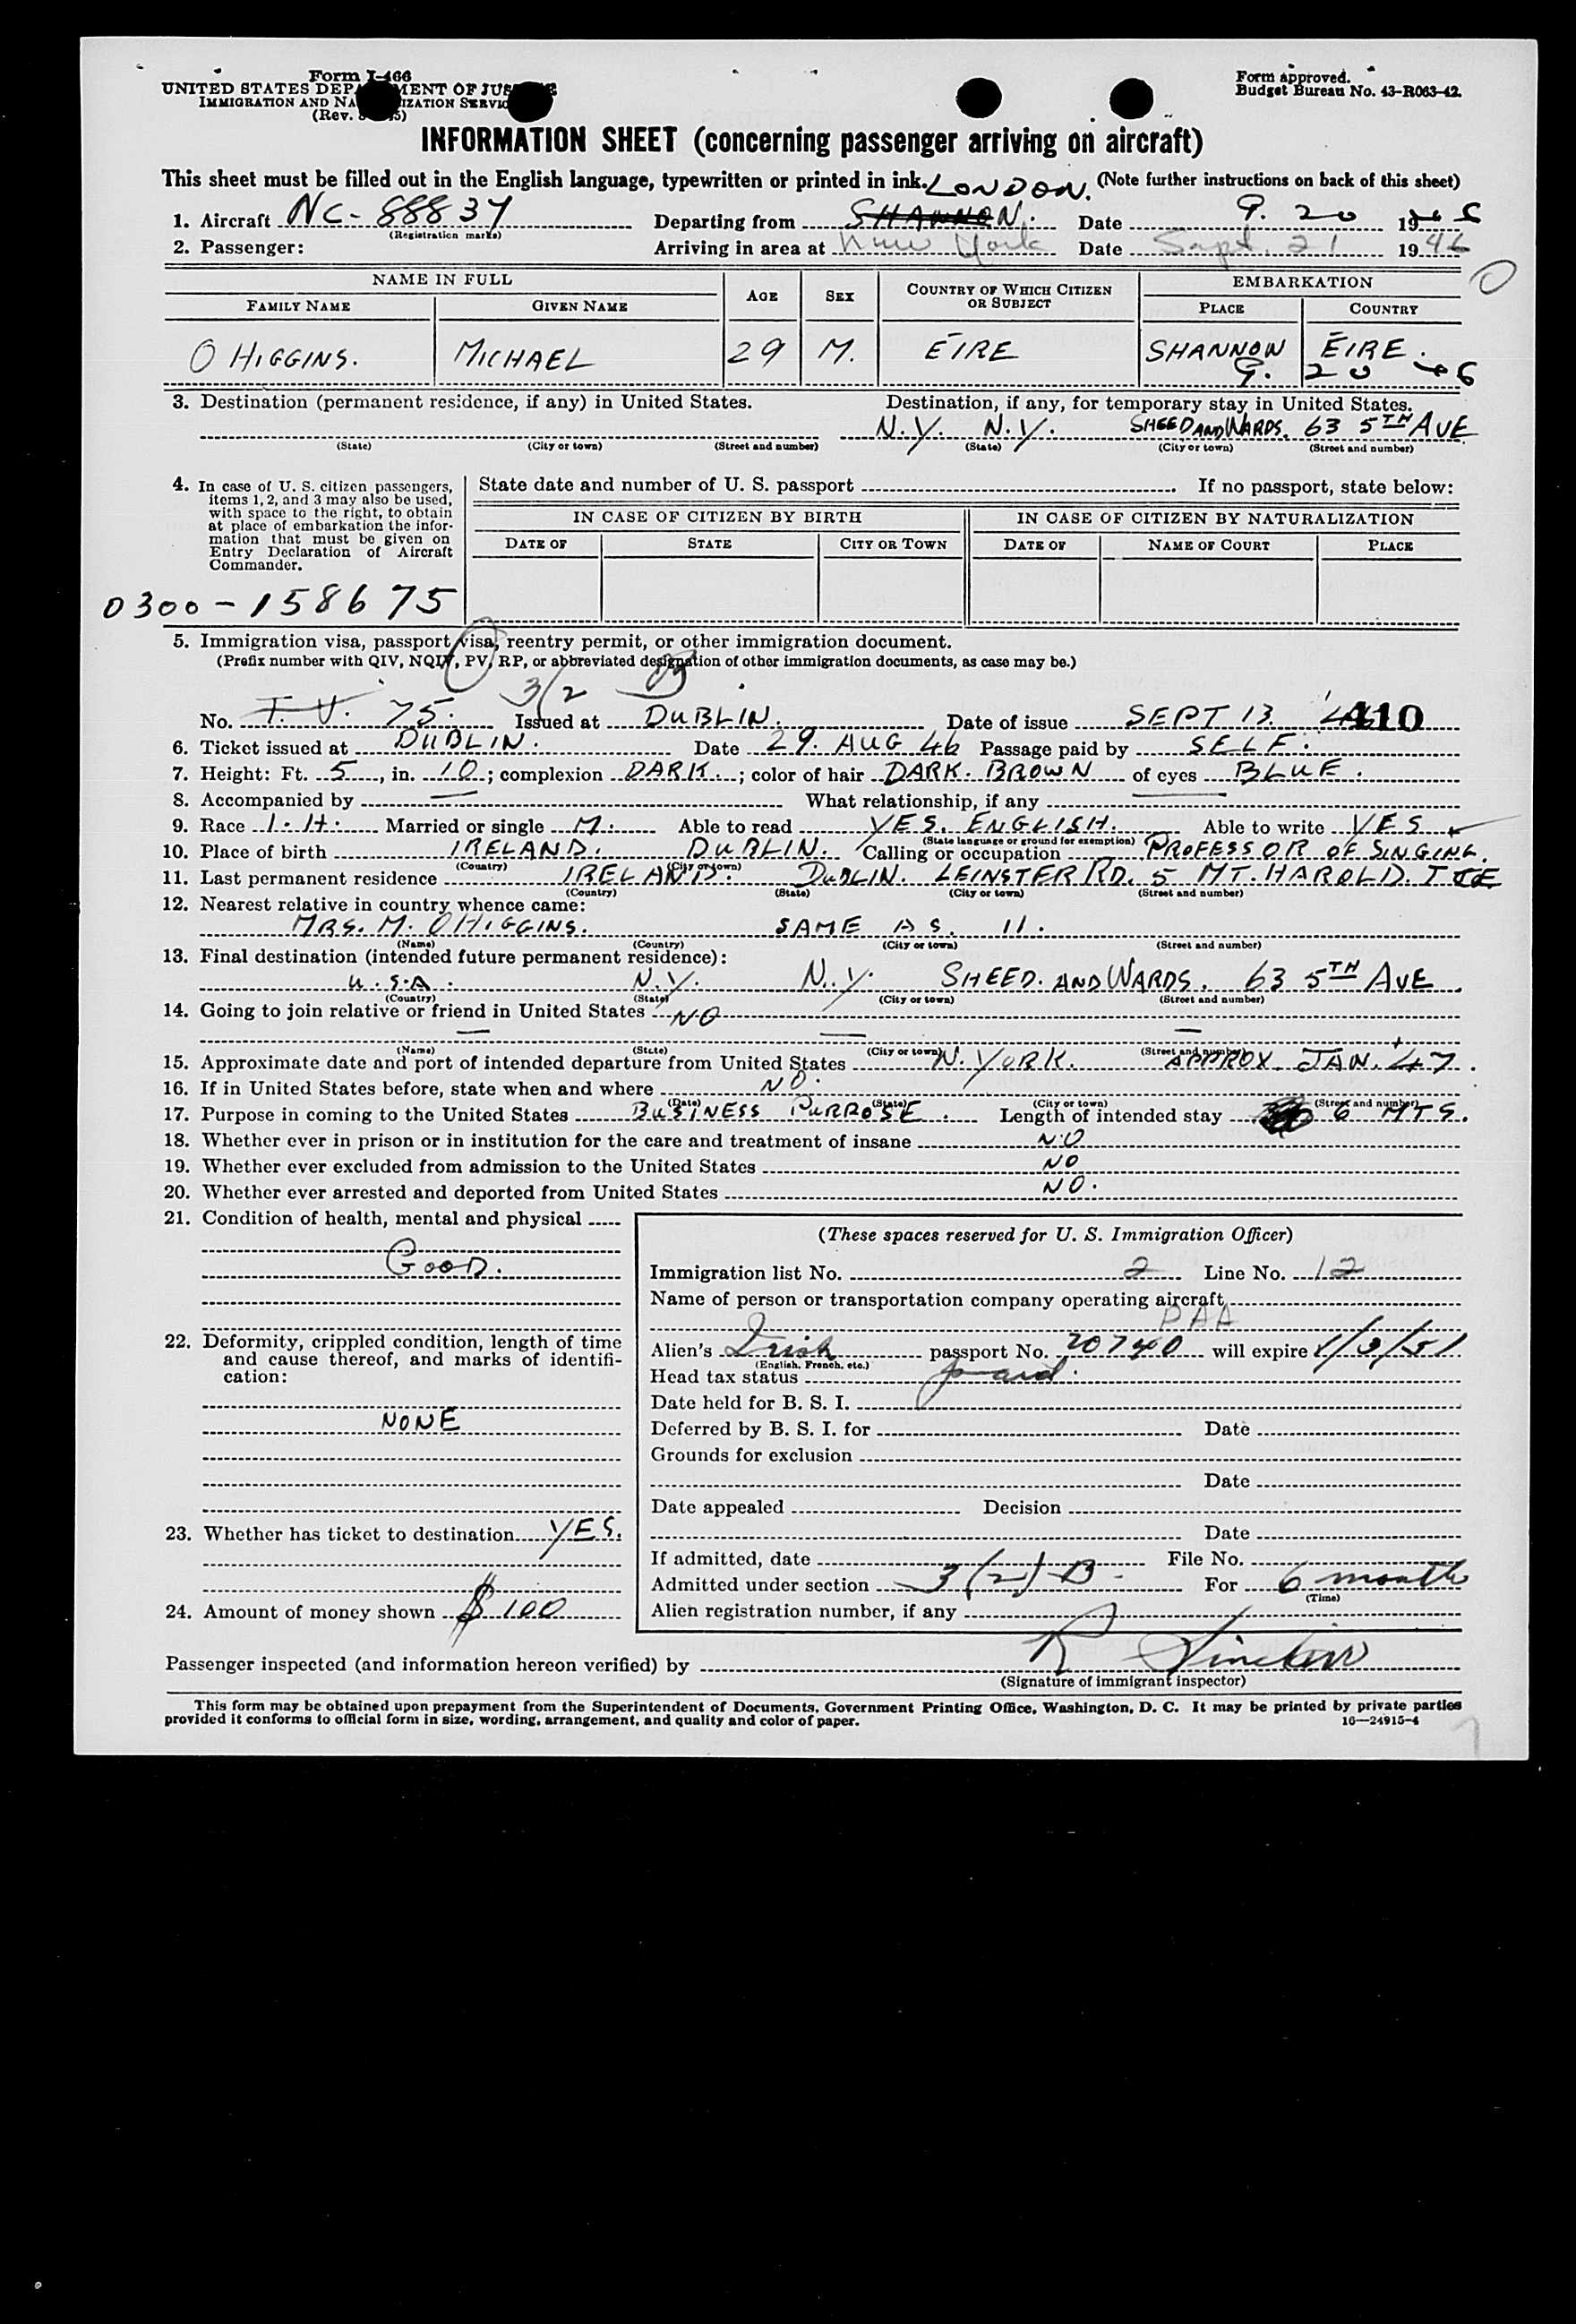 Form I-466
UNITED STATES DEPARTMENT OF JUSTICE
IMMIGRATION AND NATURALIZATION SERVICE
(Rev.
Form approved.
Budget Bureau No. 43-R063-42.
INFORMATION SHEET (concerning passenger arriving on aircraft)
This sheet must be filled out in the English language, typewritten or printed in ink. LONDON. (Note further instructions on back of this sheet)
1. Aircraft NC-88837 Departing from SHANNON. Date 9. 20 1946
(Registration marks)
2. Passenger: Arriving in area at New York Date Sept. 21 1946
NAME IN FULL AGE SEX COUNTRY OF WHICH CITIZEN OR SUBJECT EMBARKATION O
FAMILY NAME GIVEN NAME PLACE COUNTRY
O HIGGINS. MICHAEL 29 M. EIRE SHANNON EIRE.
9. 20 46
3. Destination (permanent residence, if any) in United States. Destination, if any, for temporary stay in United States.
N.Y. N.Y. SHEED AND WARDS. 63 5TH AVE
(State) (City or town) (Street and number) (State) (City or town) (Street and number)
4. In case of U. S. citizen passengers, items 1, 2, and 3 may also be used, with space to the right, to obtain at place of embarkation the information that must be given on Entry Declaration of Aircraft Commander.
State date and number of U. S. passport . If no passport, state below:
IN CASE OF CITIZEN BY BIRTH IN CASE OF CITIZEN BY NATURALIZATION
DATE OF STATE CITY OR TOWN DATE OF NAME OF COURT PLACE
0300-158675
5. Immigration visa, passport visa, reentry permit, or other immigration document.
(Prefix number with QIV, NQIV, PV, RP, or abbreviated designation of other immigration documents, as case may be.)
3/2 B
No. T. V. 75. Issued at DUBLIN. Date of issue SEPT 13. 410
6. Ticket issued at DUBLIN. Date 29. AUG 46 Passage paid by SELF.
7. Height: Ft. 5, in. 10; complexion DARK.; color of hair DARK. BROWN of eyes BLUE.
8. Accompanied by — What relationship, if any —
9. Race I.H. Married or single M. Able to read YES. ENGLISH. Able to write YES
(State language or ground for exemption)
10. Place of birth IRELAND. DUBLIN. Calling or occupation PROFESSOR OF SINGING.
(Country) (City or town)
11. Last permanent residence IRELAND. DUBLIN. LEINSTER RD. 5 MT. HAROLD. TCE
(Country) (State) (City or town) (Street and number)
12. Nearest relative in country whence came:
MRS. M. OHIGGINS. SAME AS. 11.
(Name) (Country) (City or town) (Street and number)
13. Final destination (intended future permanent residence):
U.S.A. N.Y. N.Y. SHEED. AND WARDS. 63 5TH AVE.
(Country) (State) (City or town) (Street and number)
14. Going to join relative or friend in United States NO
— — —
(Name) (State) (City or town) (Street and number)
15. Approximate date and port of intended departure from United States N. YORK. APPROX. JAN. 47.
16. If in United States before, state when and where NO.
(Date) (State) (City or town) (Street and number)
17. Purpose in coming to the United States BUSINESS PURPOSE. Length of intended stay 6 MTS.
18. Whether ever in prison or in institution for the care and treatment of insane NO
19. Whether ever excluded from admission to the United States NO
20. Whether ever arrested and deported from United States NO.
21. Condition of health, mental and physical
GOOD.
22. Deformity, crippled condition, length of time and cause thereof, and marks of identification:
NONE
23. Whether has ticket to destination YES.
24. Amount of money shown $100
(These spaces reserved for U. S. Immigration Officer)
Immigration list No. 2 Line No. 12
Name of person or transportation company operating aircraft
PAA
Alien's Irish passport No. 20740 will expire 1/3/51
(English, French, etc.)
Head tax status paid.
Date held for B. S. I.
Deferred by B. S. I. for Date
Grounds for exclusion
Date
Date appealed Decision
Date
If admitted, date File No.
Admitted under section 3(2)-B- For 6 months
(Time)
Alien registration number, if any
Passenger inspected (and information hereon verified) by R Sinclair
(Signature of immigrant inspector)
This form may be obtained upon prepayment from the Superintendent of Documents, Government Printing Office, Washington, D. C. It may be printed by private parties
provided it conforms to official form in size, wording, arrangement, and quality and color of paper. 16—24915-4